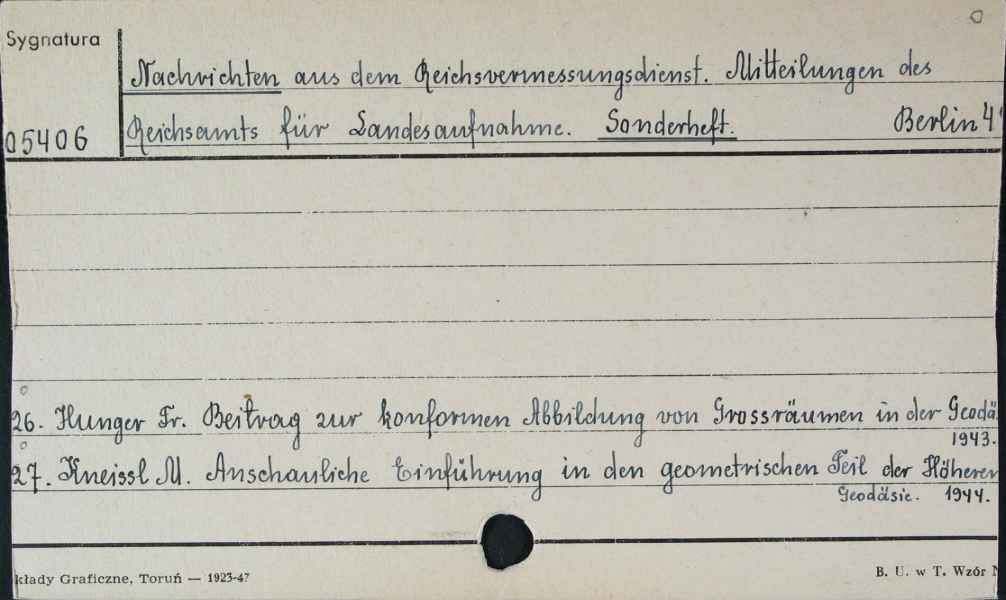 Sygnatura
Nachrichten aus dem Reichsvermessungsdienst. Mitteilungen des
05406 Reichsamts für Landesaufnahme. Sonderheft. Berlin '4
26. Hunger Fr. Beitrag zur konformen Abbildung von Grossräumen in der Geodä
1943.
27. Kneissl M. Anschauliche Einführung in den geometrischen Teil der Höheren
Geodäsie. 1944.
kłady Graficzne, Toruń — 1923-47
B. U. w T. Wzór N